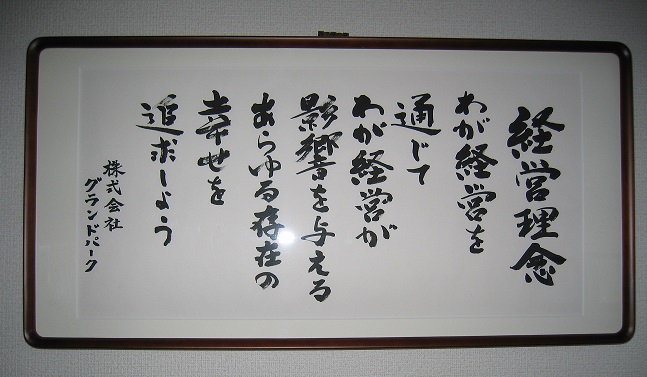 経営理念
わが経営を
通じて
わが経営が
影響を与える
あらゆる存在の
幸せを
追求しよう
株式会社
グランドパーク